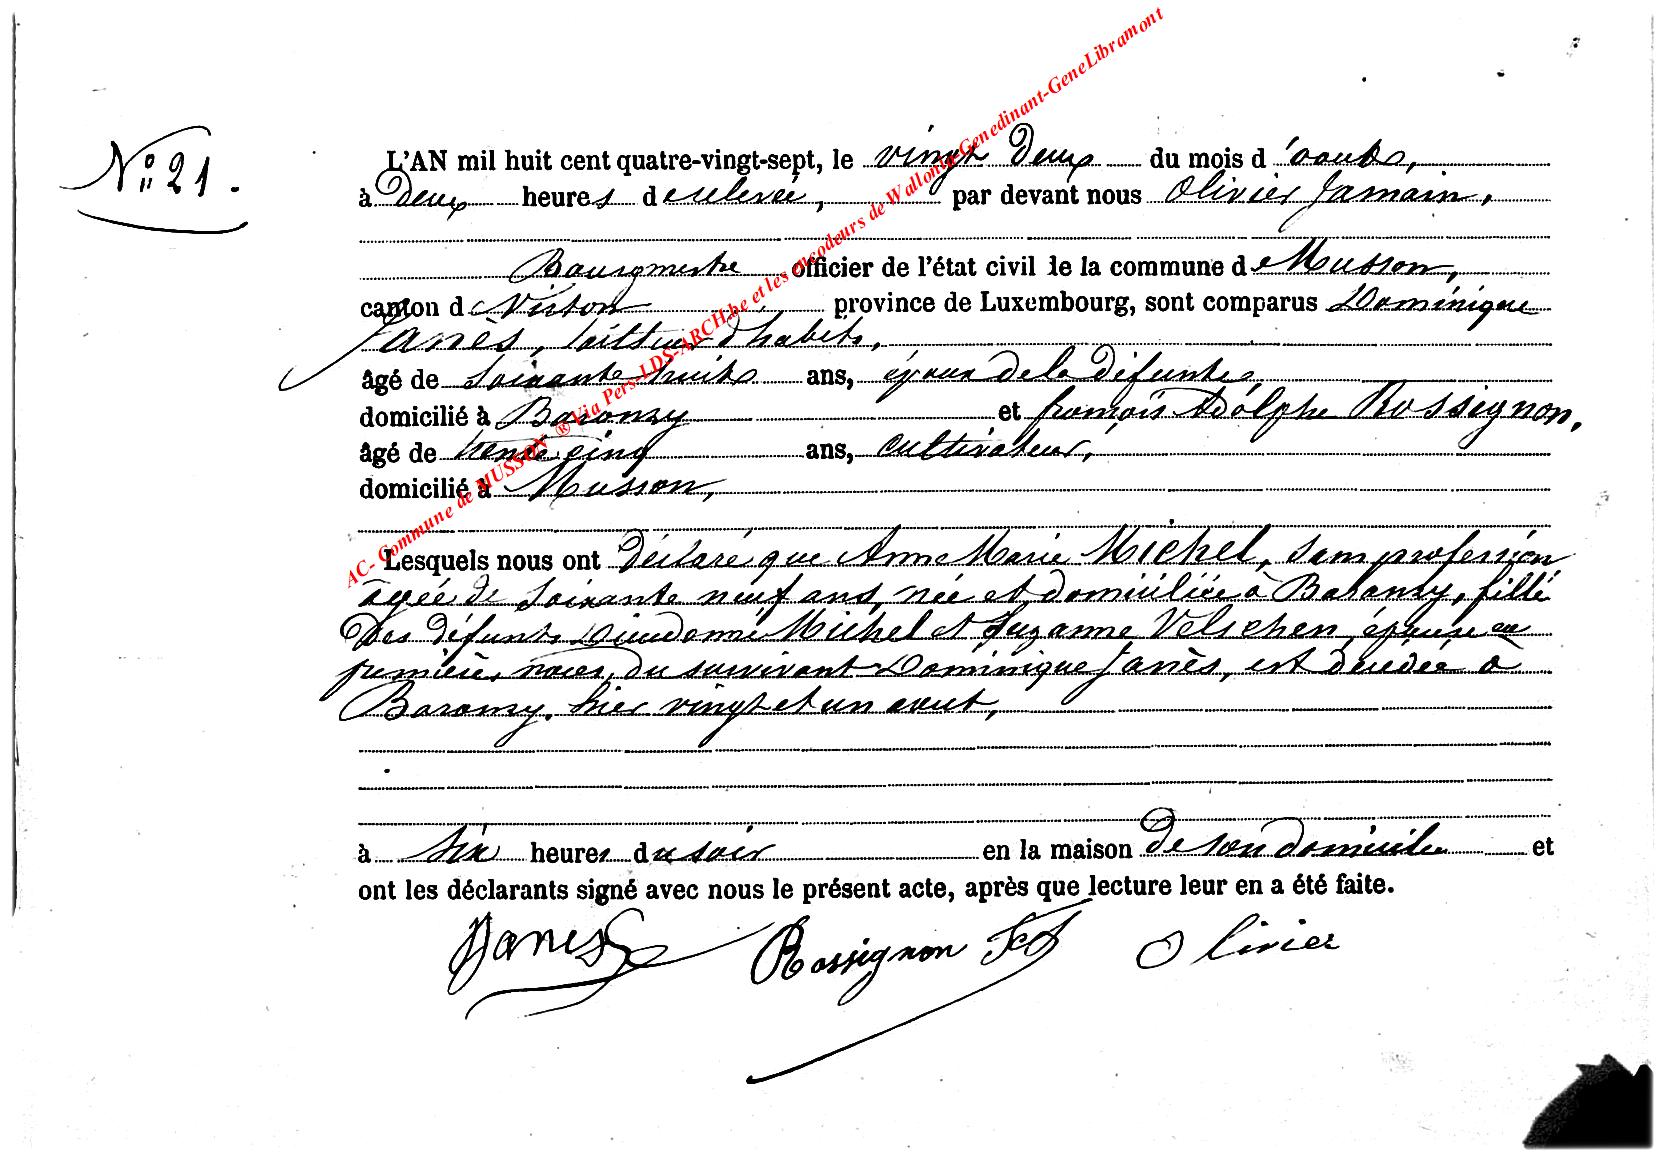 N° 21.
L'AN mil huit cent quatre-vingt-sept, le vingt deux du mois d'août,
à Deux heures de relevée, par devant nous Olivier Jamain,
Bourgmestre officier de l'état civil de la commune de Musson,
canton de Virton province de Luxembourg, sont comparus Dominique
Janès, tailleur d'habits,
âgé de soixante huit ans, époux de la défunte,
domicilié à Baranzy et françois Adolphe Rossignon,
âgé de trente cinq ans, cultivateur,
domicilié à Musson,
Lesquels nous ont déclaré que Anne Marie Michel, sans profession
âgée de soixante neuf ans, née et domiciliée à Baranzy, fille
Des défunts Dieudonné Michel et Suzanne Velschen, épouse en
première noces, du survivant Dominique Janès, est décédée à
Baranzy, hier vingt et un aout,
à six heures du soir en la maison de son domicile et
ont les déclarants signé avec nous le présent acte, après que lecture leur en a été faite.
Janes Rossignon Olivier
AC- Commune de MUSSON ® Via Pers-LDS-ARCH.be et les encodeurs de Wallonie-Genedinant-GeneLibramont